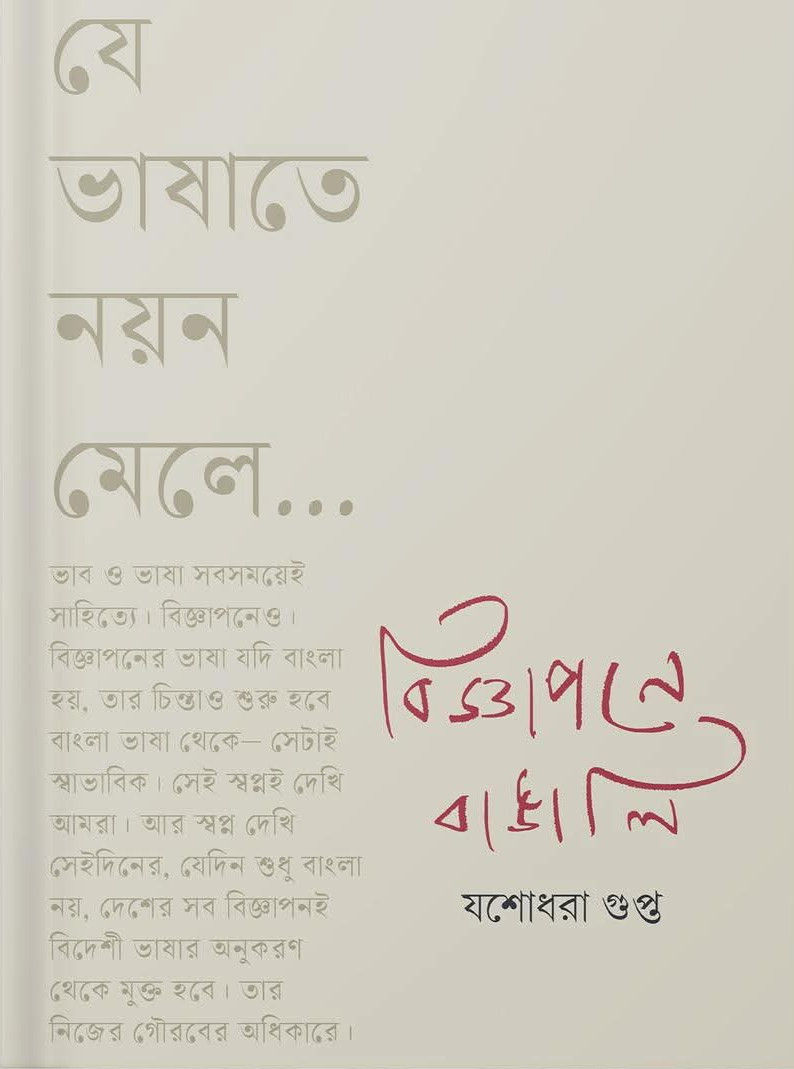 যে
ভাষাতে
নয়ন
মেলে...
ভাব ও ভাষা সবসময়েই
সাহিত্যে। বিজ্ঞাপনেও।
বিজ্ঞাপনের ভাষা যদি বাংলা
হয়, তার চিন্তাও শুরু হবে
বাংলা ভাষা থেকে— সেটাই
স্বাভাবিক। সেই স্বপ্নই দেখি
আমরা। আর স্বপ্ন দেখি
সেইদিনের, যেদিন শুধু বাংলা
নয়, দেশের সব বিজ্ঞাপনই
বিদেশী ভাষার অনুকরণ
থেকে মুক্ত হবে। তার
নিজের গৌরবের অধিকারে।
বিজ্ঞাপনে
বাঙালি
যশোধরা গুপ্ত